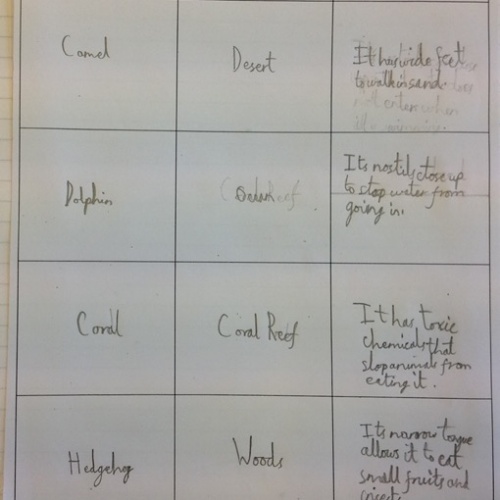 Camel
Desert
It has wide feet
to walk in sand.
Dolphin
Its nostils close up
to stop water from
going in.
Coral
Coral Reef
It has toxic
chemicals that
stop animals from
eating it.
Hedgehog
Woods
Its narrow tongue
allows it to eat
small fruits and